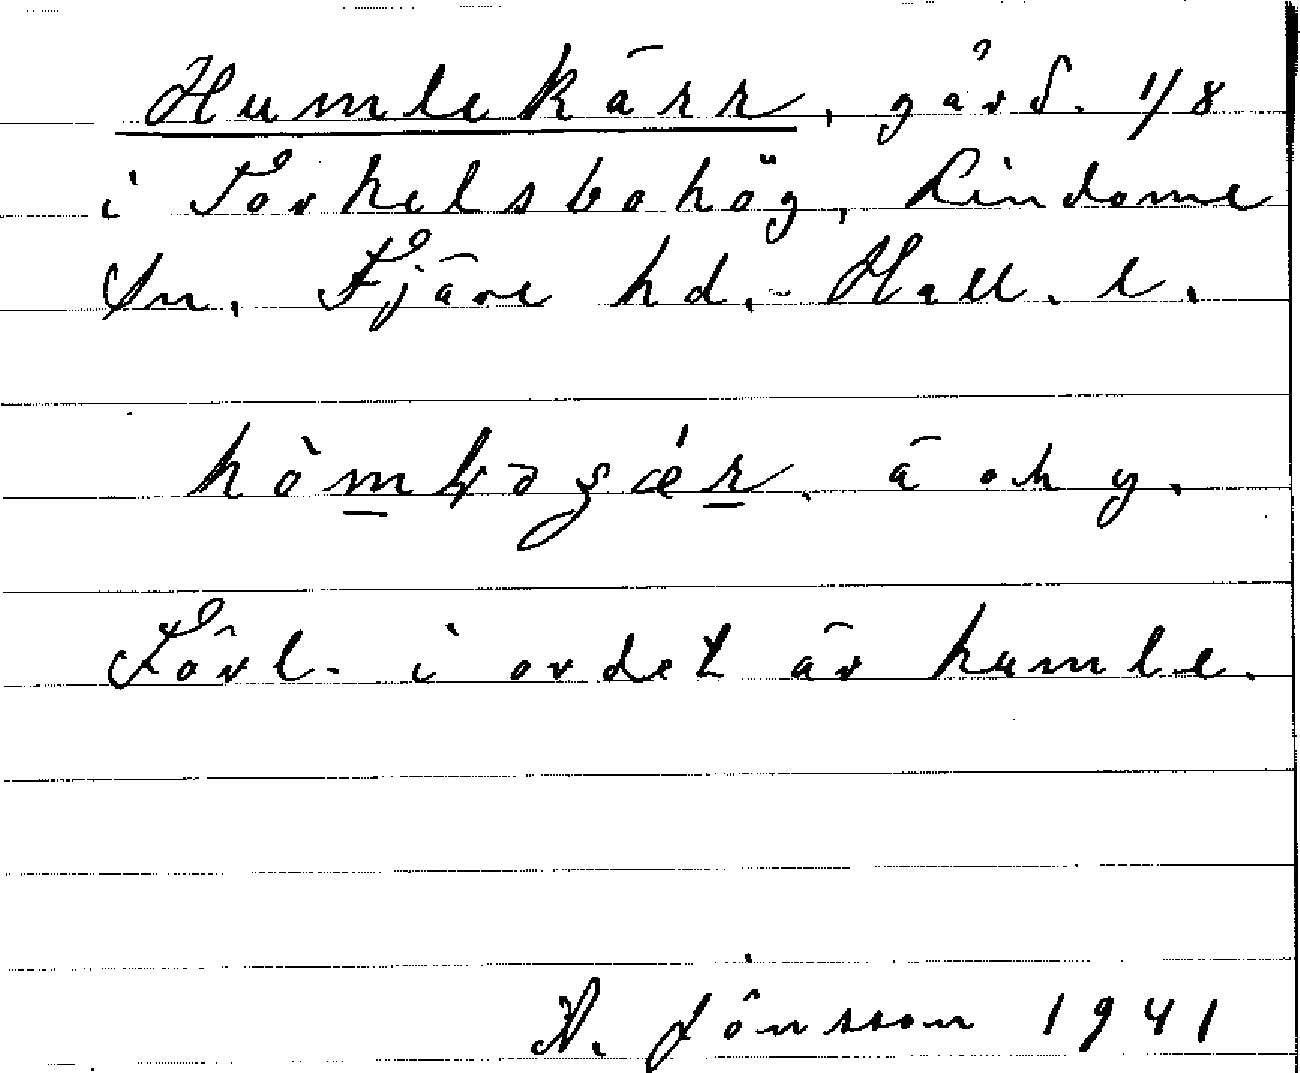 Humlekärr, gård. 1/8
i Torkelsbohög, Lindome
Sn. Fjäre hd. Hall. l.
ä. och y.
Förl. i ordet är humle.
A. Jönsson 1941